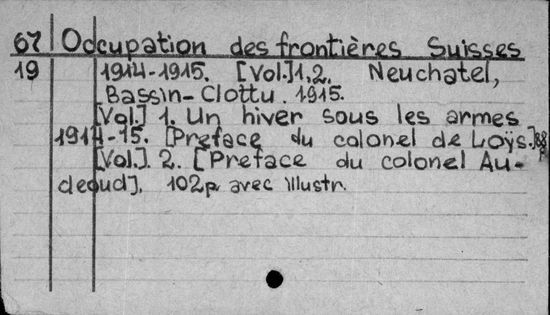 67 Occupation des frontières Suisses
19 1914-1915. [Vol.] 1,2. Neuchatel,
Bassin-Clottu. 1915.
[Vol.] 1. Un hiver sous les armes
1914-15. [Preface du colonel de Loÿs.] 88p
[Vol.]. 2. [Preface du colonel Au-
deoud]. 102p avec illustr.